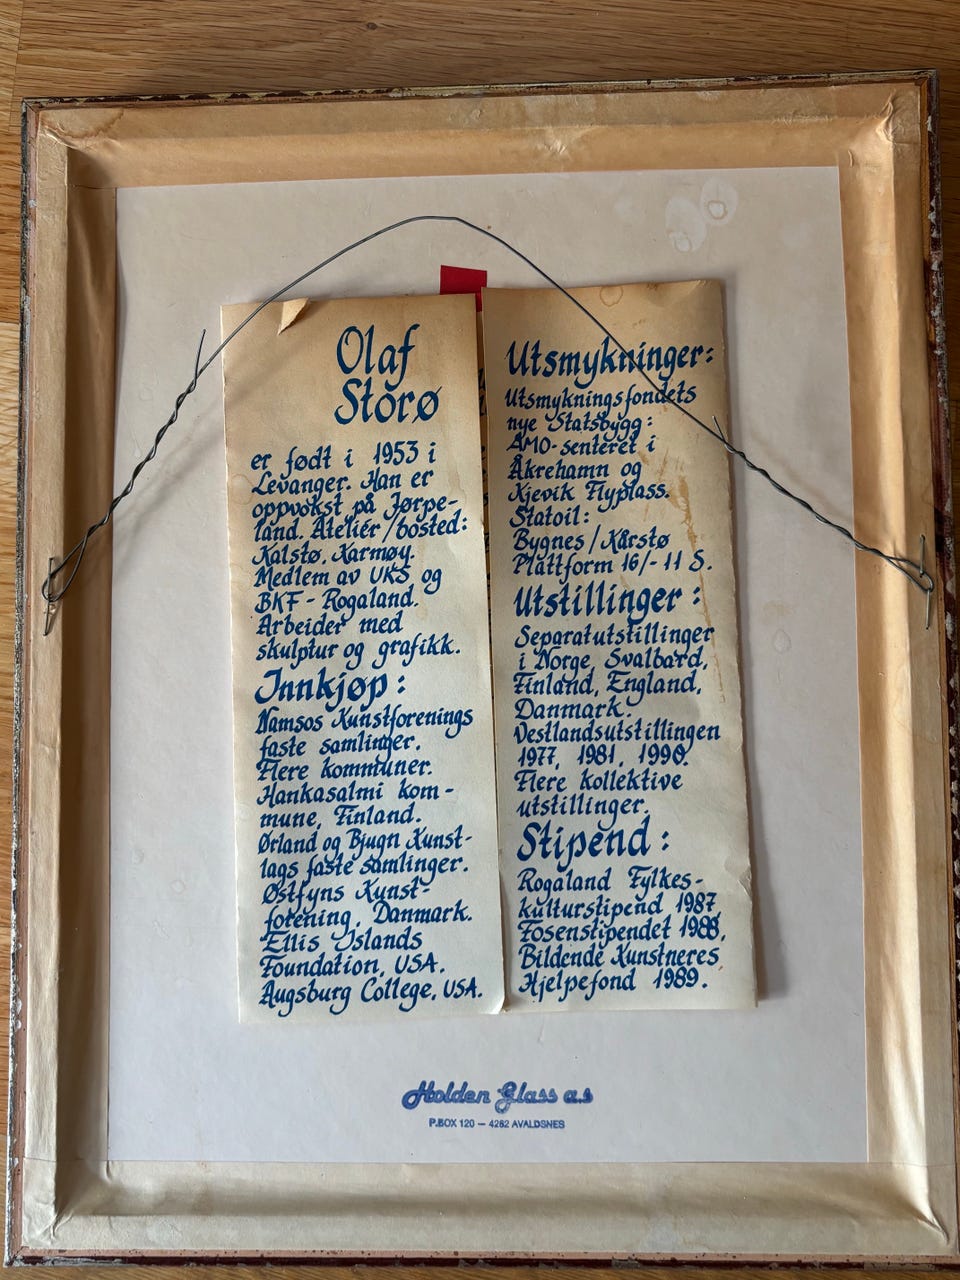 Olaf
Storø
er født i 1953 i
Levanger. Han er
oppvokst på Jørpe-
land. Atelier/bosted:
Kalstø, Karmøy.
Medlem av UKS og
BKF - Rogaland.
Arbeider med
skulptur og grafikk.
Innkjøp:
Namsos Kunstforenings
faste samlinger.
Flere kommuner.
Hankasalmi kom-
mune, Finland.
Ørland og Bjugn Kunst-
lags faste samlinger.
Østfyns Kunst-
forening, Danmark.
Ellis Islands
Foundation, USA.
Augsburg College, USA.
Utsmykninger:
Utsmykningsfondets
nye Statsbygg:
AMO-senteret i
Åkrehamn og
Kjevik Flyplass.
Statoil:
Bygnes/Kårstø
Plattform 16/-11 S.
Utstillinger:
Separatutstillinger
i Norge, Svalbard,
Finland, England,
Danmark.
Vestlandsutstillingen
1977, 1981, 1990.
Flere kollektive
utstillinger.
Stipend:
Rogaland Fylkes-
kulturstipend 1987
Fosenstipendet 1988,
Bildende Kunstneres
Hjelpefond 1989.
Holden Glass a.s
P.BOX 120 — 4262 AVALDSNES